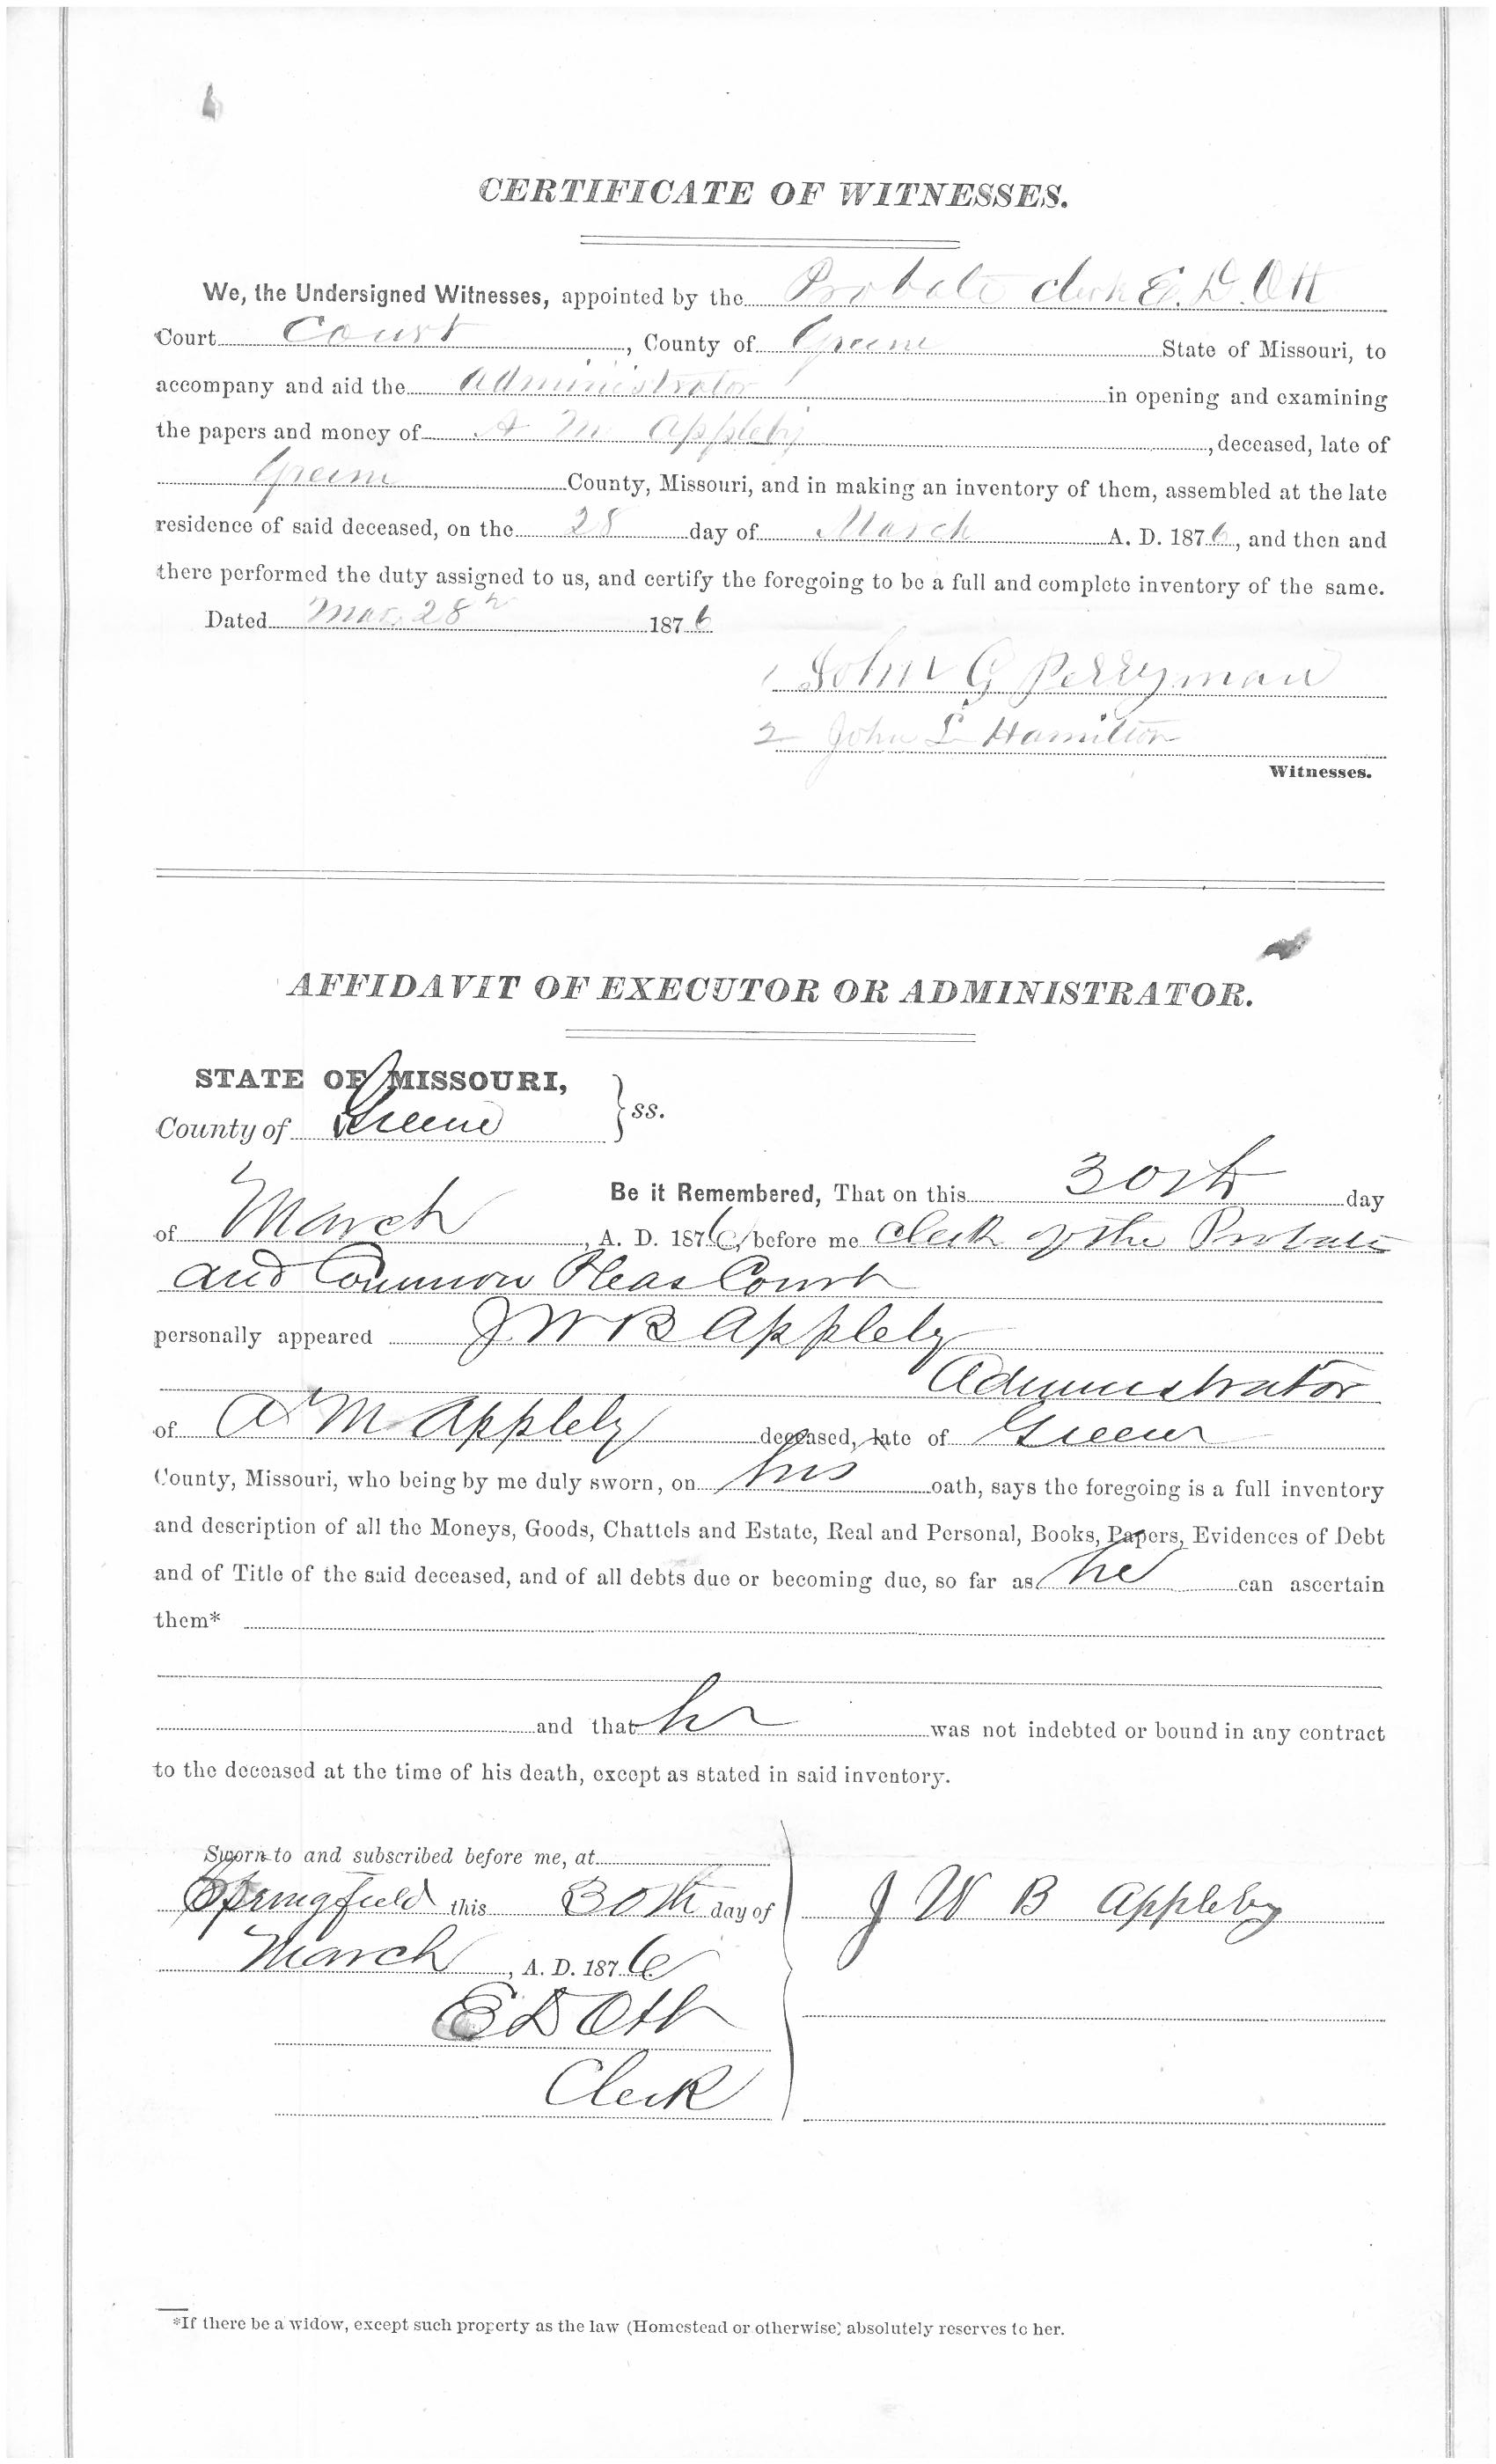 CERTIFICATE OF WITNESSES.
We, the Undersigned Witnesses, appointed by the Probate Clerk E. D. Ott
Court Court, County of Greene State of Missouri, to
accompany and aid the Administrator in opening and examining
the papers and money of A M Appleby, deceased, late of
Greene County, Missouri, and in making an inventory of them, assembled at the late
residence of said deceased, on the 28 day of March A. D. 1876, and then and
there performed the duty assigned to us, and certify the foregoing to be a full and complete inventory of the same.
Dated Mar. 28th 1876
1 John G Perryman
2 John L Hamilton
Witnesses.
AFFIDAVIT OF EXECUTOR OR ADMINISTRATOR.
STATE OF MISSOURI,
County of Greene } ss.
Be it Remembered, That on this 30th day
of March, A. D. 1876, before me Clerk of the Probate
and Common Pleas Court
personally appeared J W B Appleby
Administrator
of A M Appleby deceased, late of Greene
County, Missouri, who being by me duly sworn, on his oath, says the foregoing is a full inventory
and description of all the Moneys, Goods, Chattels and Estate, Real and Personal, Books, Papers, Evidences of Debt
and of Title of the said deceased, and of all debts due or becoming due, so far as he can ascertain
them*
and that he was not indebted or bound in any contract
to the deceased at the time of his death, except as stated in said inventory.
Sworn to and subscribed before me, at
Springfield this 30th day of
March, A. D. 1876
E D Ott
Clerk
J W B Appleby
*If there be a widow, except such property as the law (Homestead or otherwise) absolutely reserves to her.